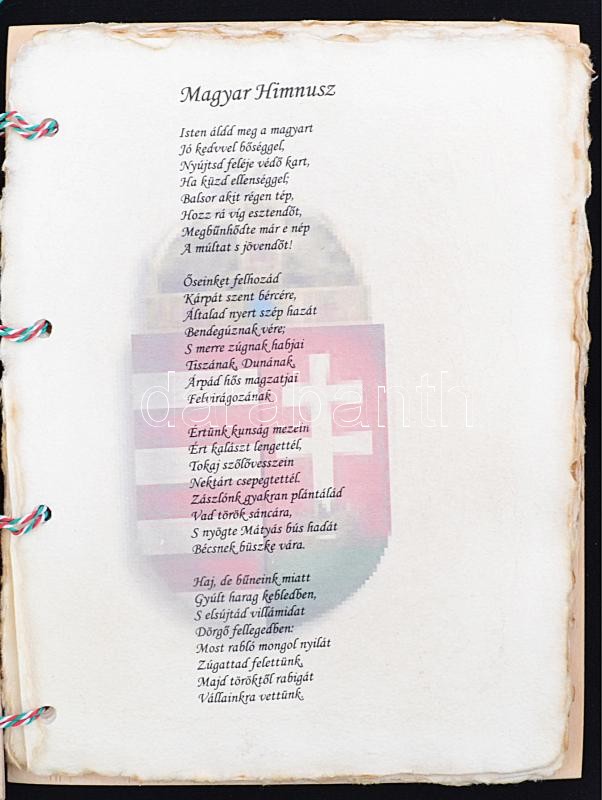 Magyar Himnusz
Isten áldd meg a magyart
Jó kedvvel bőséggel,
Nyújtsd feléje védő kart,
Ha küzd ellenséggel;
Balsor akit régen tép,
Hozz rá víg esztendőt,
Megbűnhődte már e nép
A múltat s jövendőt!
Őseinket felhozád
Kárpát szent bércére,
Általad nyert szép hazát
Bendegúznak vére;
S merre zúgnak habjai
Tiszának, Dunának,
Árpád hős magzatjai
Felvirágozának.
Értünk kunság mezein
Ért kalászt lengettél,
Tokaj szőlővesszein
Nektárt csepegtettél.
Zászlónk gyakran plántálád
Vad török sáncára,
S nyögte Mátyás bús hadát
Bécsnek büszke vára.
Haj, de bűneink miatt
Gyúlt harag kebledben,
S elsújtád villámidat
Dörgő fellegedben:
Most rabló mongol nyilát
Zúgattad felettünk,
Majd töröktől rabigát
Vállainkra vettünk.
darabanth